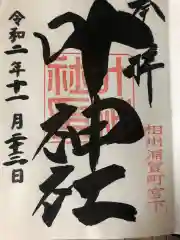 奉拝
相州浦賀町宮下
叶神社
令和二年十一月二十三日